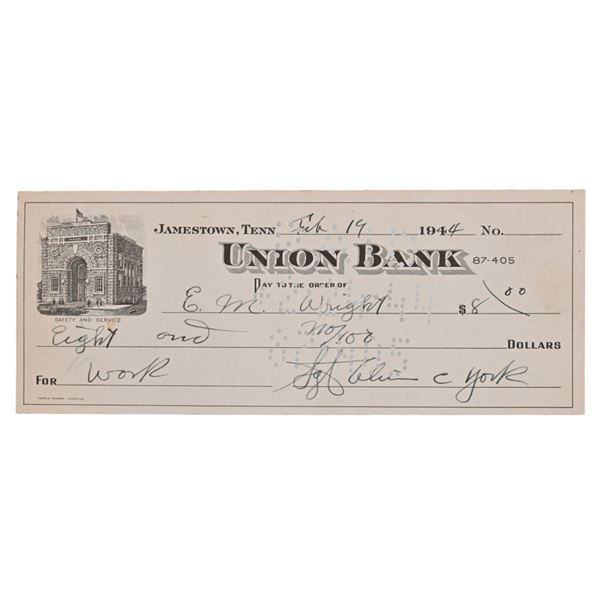 JAMESTOWN, TENN Feb 19 1944 No.
UNION BANK 87-405
PAY TO THE ORDER OF
E. M. Wright $8 00
SAFETY AND SERVICE
Eight and no/100 DOLLARS
FOR Work Sgt Alvin C York